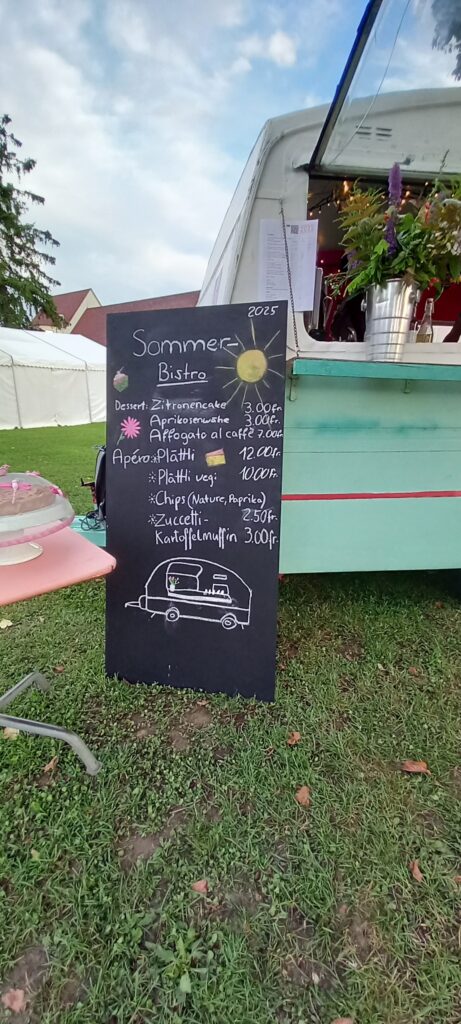 2025
Sommer-
Bistro
Dessert: Zitronencake 3.00fr.
Aprikosenwähe 3.00fr.
Affogato al caffè 7.00fr.
Apéro: Plättli 12.00fr.
* Plättli vegi 10.00fr.
* Chips (Nature, Paprika)
* Zucchetti- 2.50fr
Kartoffelmuffin 3.00fr.